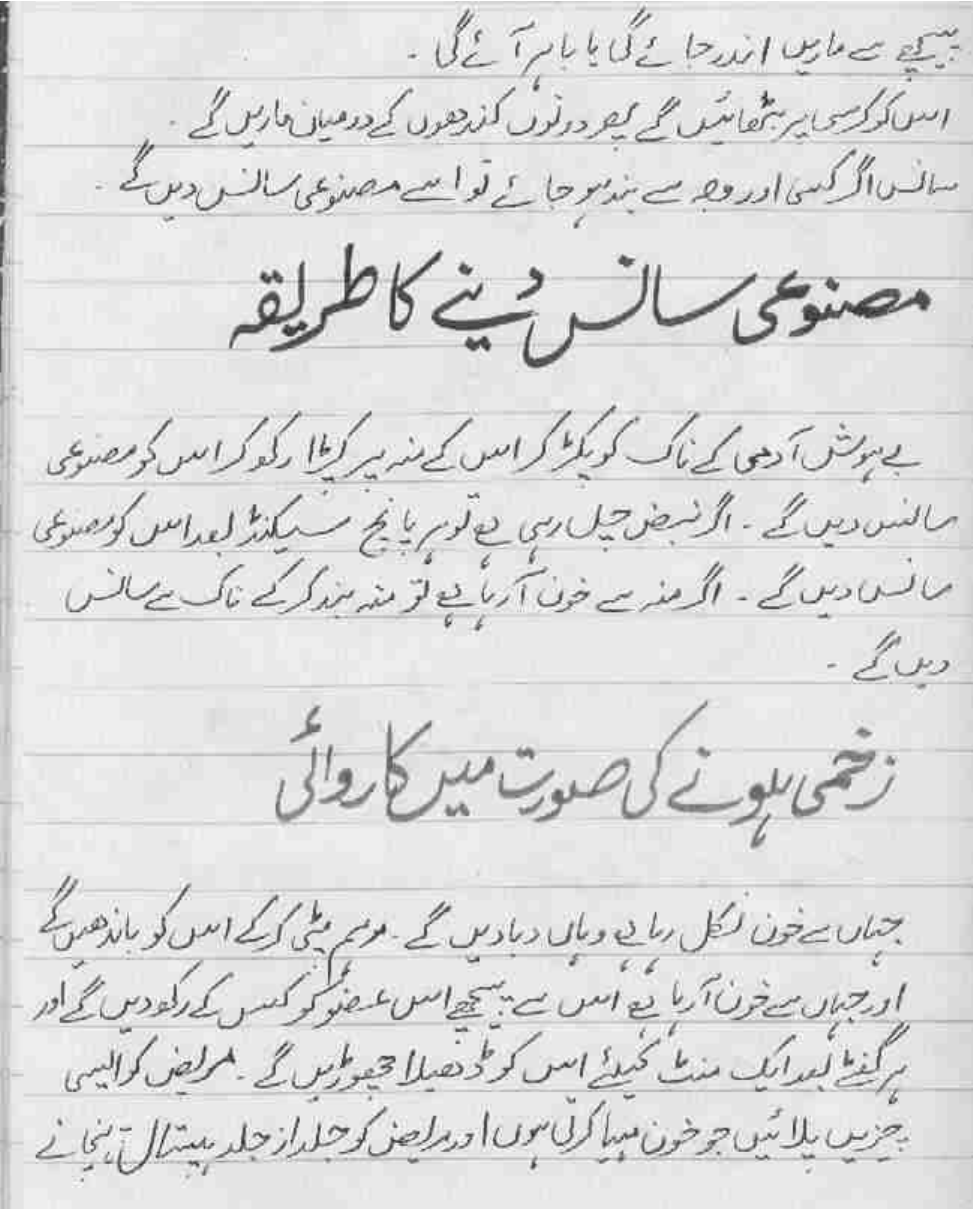 پیچھے سے ماریں اندر جائے گا یا باہر آئے گی ۔
اس کو کرسی پر بٹھائیں گے پھر دونوں کندھوں کے درمیان ماریں گے ۔
سانس اگر کسی اور وجہ سے بند ہو جائے تو اسے مصنوعی سانس دیں گے ۔
مصنوعی سانس دینے کا طریقہ
بے ہوش آدمی کے ناک کو پکڑ کر اس کے منہ پر کپڑا رکھ کر اس کو مصنوعی
سانس دیں گے ۔ اگر نبض چل رہی ہے تو ہر پانچ سیکنڈ بعد اس کو مصنوعی
سانس دیں گے ۔ اگر منہ سے خون آ رہا ہے تو منہ بند کر کے ناک سے سانس
دیں گے ۔
زخمی ہونے کی صورت میں کاروائی
جہاں سے خون نکل رہا ہے وہاں دبا دیں گے ۔ مرہم پٹی کر کے اس کو باندھیں گے
اور جہاں سے خون آ رہا ہے اس سے پیچھے اس عضو کو کس کے رکھ دیں گے اور
ہر گھنٹے بعد ایک منٹ کیلئے اس کو ڈھیلا چھوڑیں گے ۔ مریض کو ایسی
چیزیں پلائیں جو خون مہیا کرتی ہوں اور مریض کو جلد از جلد ہسپتال پہنچانے